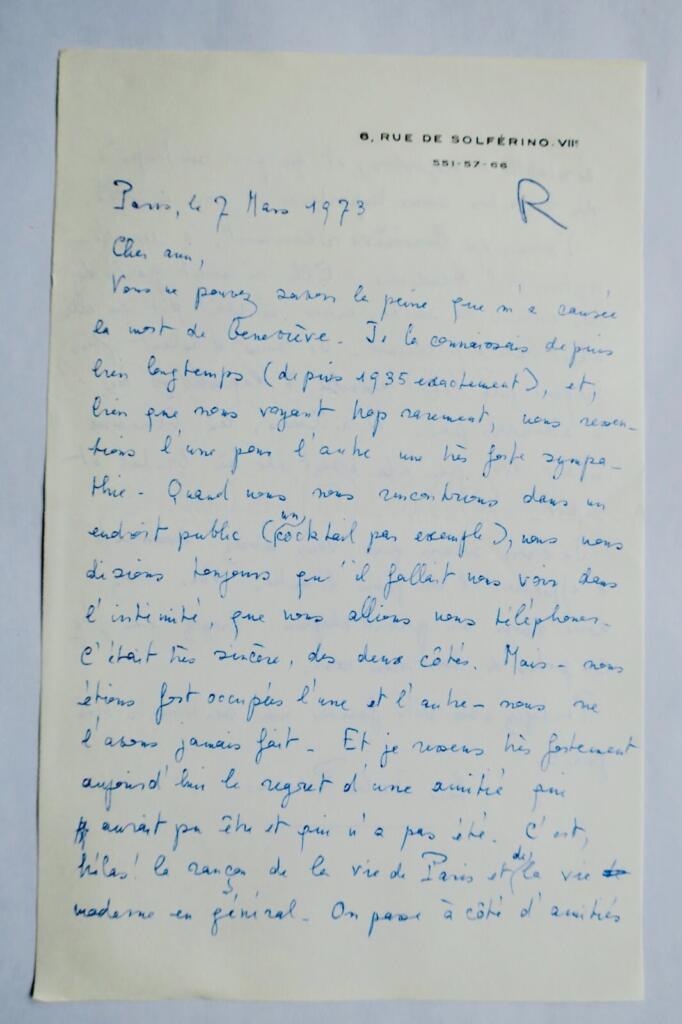 6, RUE DE SOLFÉRINO. VIIᵉ
551-57-66
R
Paris, le 7 Mars 1973
Cher ami,
Vous ne pouvez savoir la peine que m'a causée
la mort de Geneviève. Je la connaissais depuis
bien longtemps (depuis 1935 exactement), et,
bien que nous voyant trop rarement, nous ressen-
tions l'une pour l'autre une très forte sympa-
thie - Quand nous nous rencontrions dans un
endroit public (un cocktail par exemple), nous nous
disions toujours qu'il fallait nous voir dans
l'intimité, que nous allions nous téléphoner.
C'était très sincère, des deux côtés. Mais - nous
étions fort occupées l'une et l'autre - nous ne
l'avons jamais fait - Et je ressens très fortement
aujourd'hui le regret d'une amitié qui
aurait pu être et qui n'a pas été. C'est,
hélas! la rançon de la vie de Paris et de la vie
moderne en général - On passe à côté d'amitiés